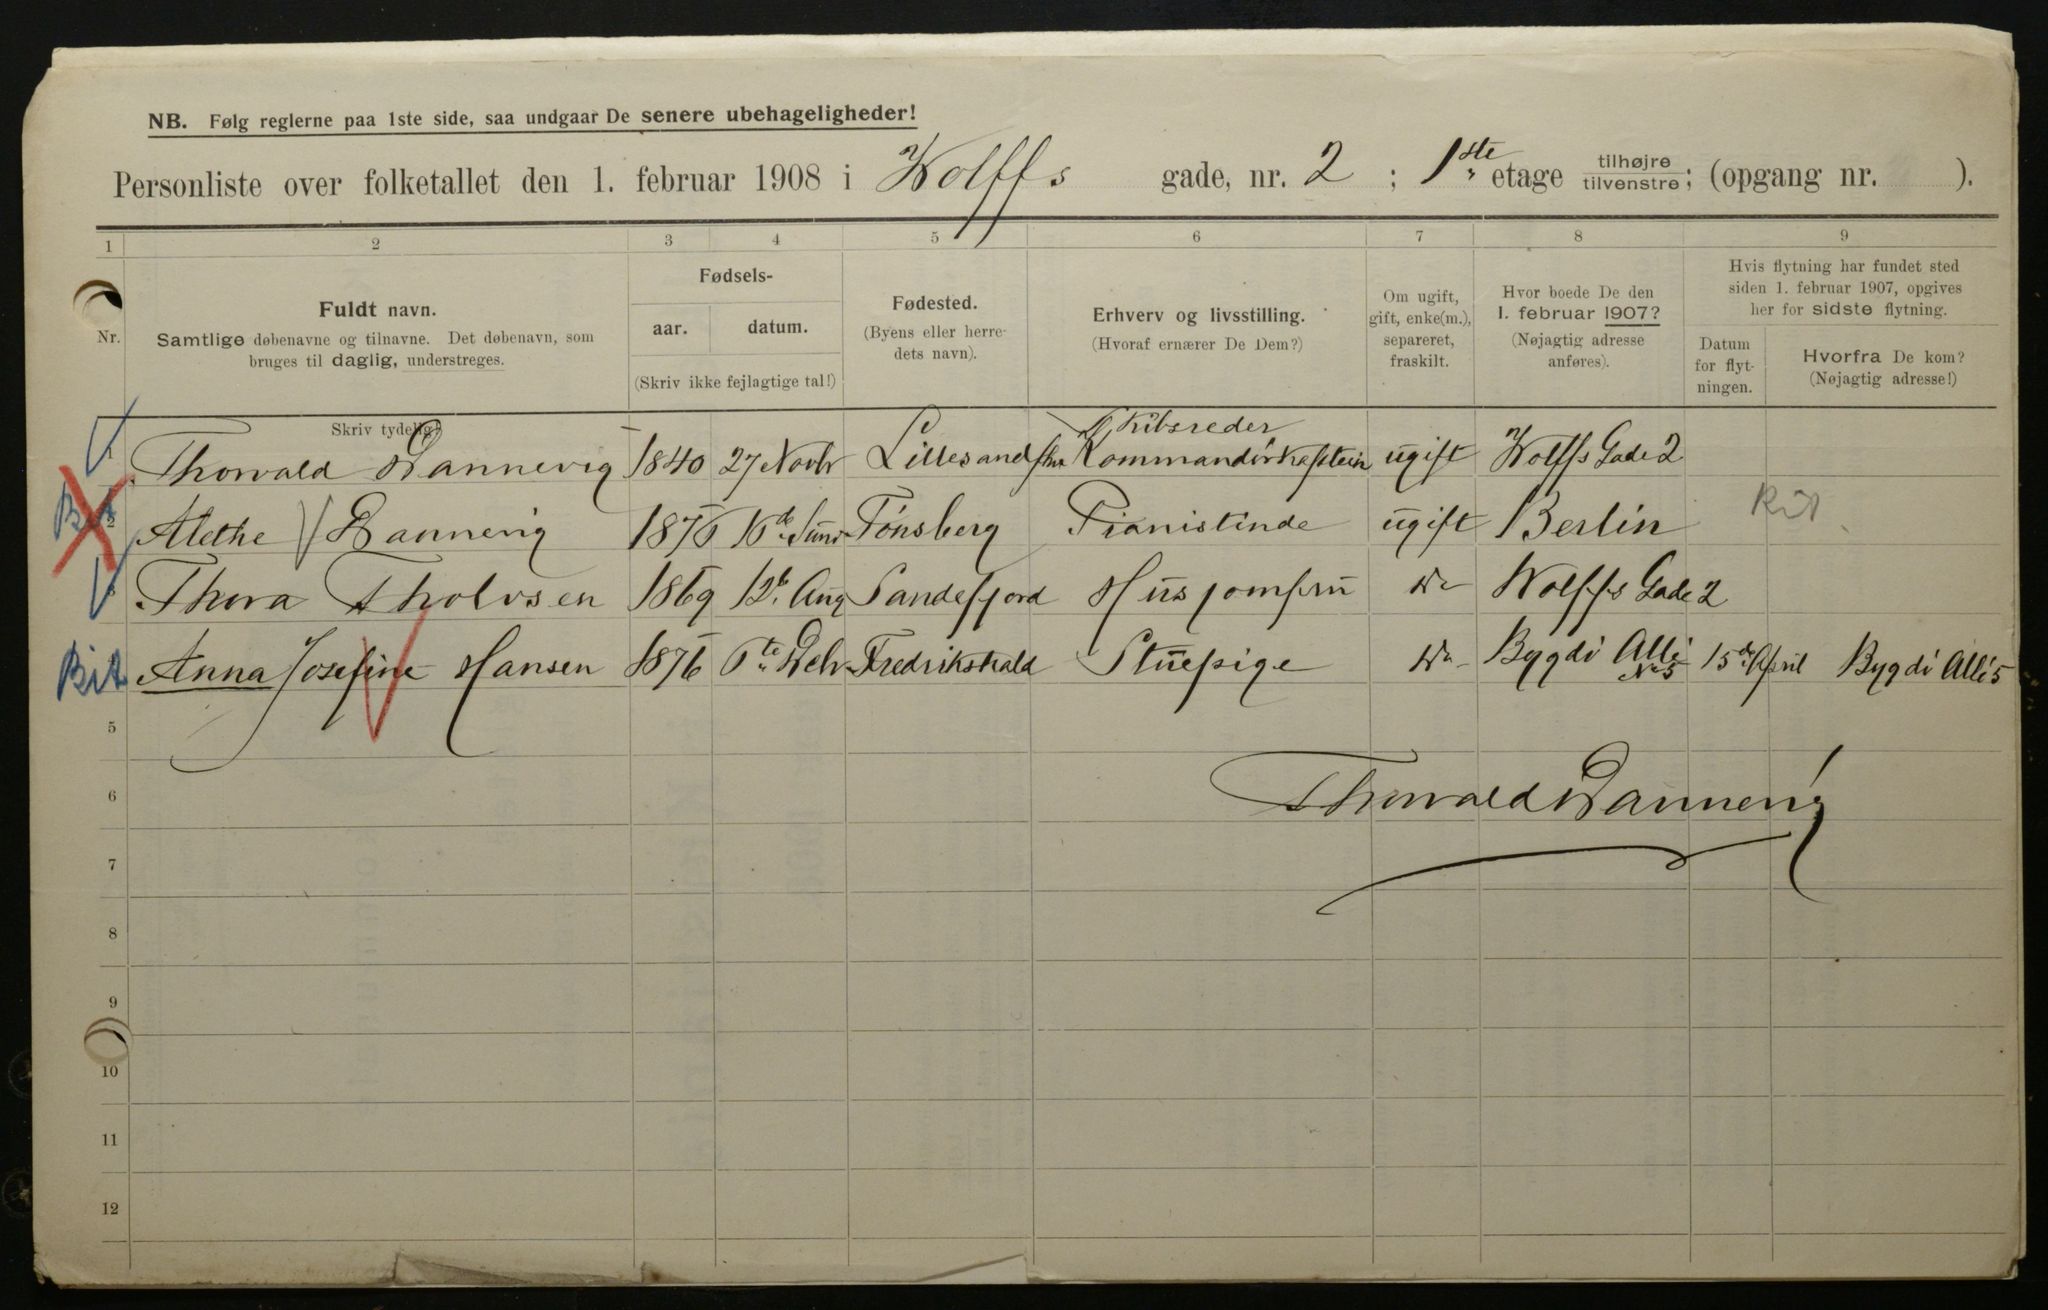 NB. Følg reglerne paa 1ste side, saa undgaar De senere ubehageligheder!
Personliste over folketallet den 1. februar 1908 i Wolffs gade, nr. 2 ; 1ste etage tilhøjre tilvenstre; (opgang nr. ).
1 2 3 4 5 6 7 8 9
Nr.
Fuldt navn.
Samtlige døbenavne og tilnavne. Det døbenavn, som
bruges til daglig, understreges.
Skriv tydelig!
Fødsels-
aar. datum.
(Skriv ikke fejlagtige tal!)
Fødested.
(Byens eller herre-
dets navn).
Erhverv og livsstilling.
(Hvoraf ernærer De Dem?)
Om ugift,
gift, enke(m.),
separeret,
fraskilt.
Hvor boede De den
1. februar 1907?
(Nøjagtig adresse
anføres).
Hvis flytning har fundet sted
siden 1. februar 1907, opgives
her for sidste flytning.
Datum
for flyt-
ningen.
Hvorfra De kom?
(Nøjagtig adresse!)
Skibsreder
1 Thorvald Dannevig 1840 27 Novbr Lillesand Kommandörkaptein ugift Wolffs Gade 2
2 Alethe Dannevig 1876 Juni Tönsberg Pianistinde ugift Berlin
3 Thora Tholvsen 1869 12te Aug Sandefjord Husjomfru Do Wolffs Gade 2
Anna Josefine Hansen 1876 6te Deb Fredrikshald Stuepige Do Bygdö Allé No 5 15de April Bygdö Allé 5
5
Thorvald Dannevig
6
7
8
9
10
11
12